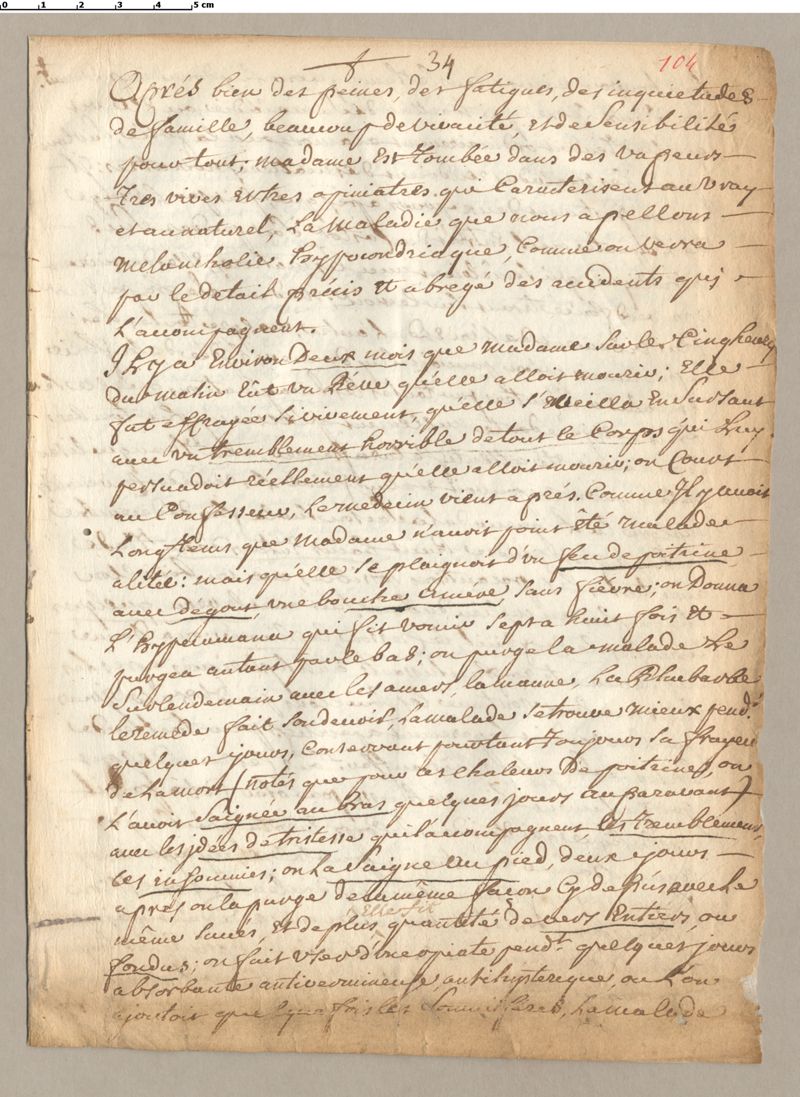 0 1 2 3 4 5 cm
34 104
Aprés bien des peines, des fatigues, des inquietudes
de famille, beaucoup de vivacité, et de sensibilité
pour tout; madame est tombée dans des vapeurs
tres vives et tres opiniatres qui caracterisent au vray
et au naturel, la maladie que nous apellons
melancholie hypocondriaque, comme on verra
par le detail précis et abregé des accidents qui
l'accompagnent.
Il y a environ deux mois que madame sur les cinq heures
du matin eût un rêve qu'elle alloit mourir; elle
fut effrayée si vivement, qu'elle s'eveilla en sursaut
avec un tremblement horrible de tout le corps qui luy
persuadoit réellement qu'elle alloit mourir; on court
au confesseur, le medecin vient aprés. Comme il y avoit
longtems que madame n'avoit point êté malade
alitée: mais qu'elle se plaignoit d'un feu de poitrine
avec dégout, une bouche amére, sans fiévre; on donna
l'hypecuana qui fit vomir sept a huit fois et
purgea autant par le bas; on purge la malade le
surlendemain avec les amers, la manne, la rhubarbe
le remede fait son devoir, la malade se trouve mieux pend.t
quelques jours, conservant pourtant toujours sa frayeur
de la mort (notés que pour ces chaleurs de poitrine, on
l'avoit saignée au bras quelques jours auparavant)
avec les idées de tristesse qui l'accompagnent, les tremblements,
les insomnies; on la saigne au pied, deux jours
aprés on la purge de la même façon cy dessus avec le
elle fit
même succés, et de plus quantité de vers entiers, ou
fondus; on fait user d'une opiate pend.t quelques jours
absorbante antivermineuse, antihysterique, ou l'on
ajoutoit quelquefois les somniferes, la malade